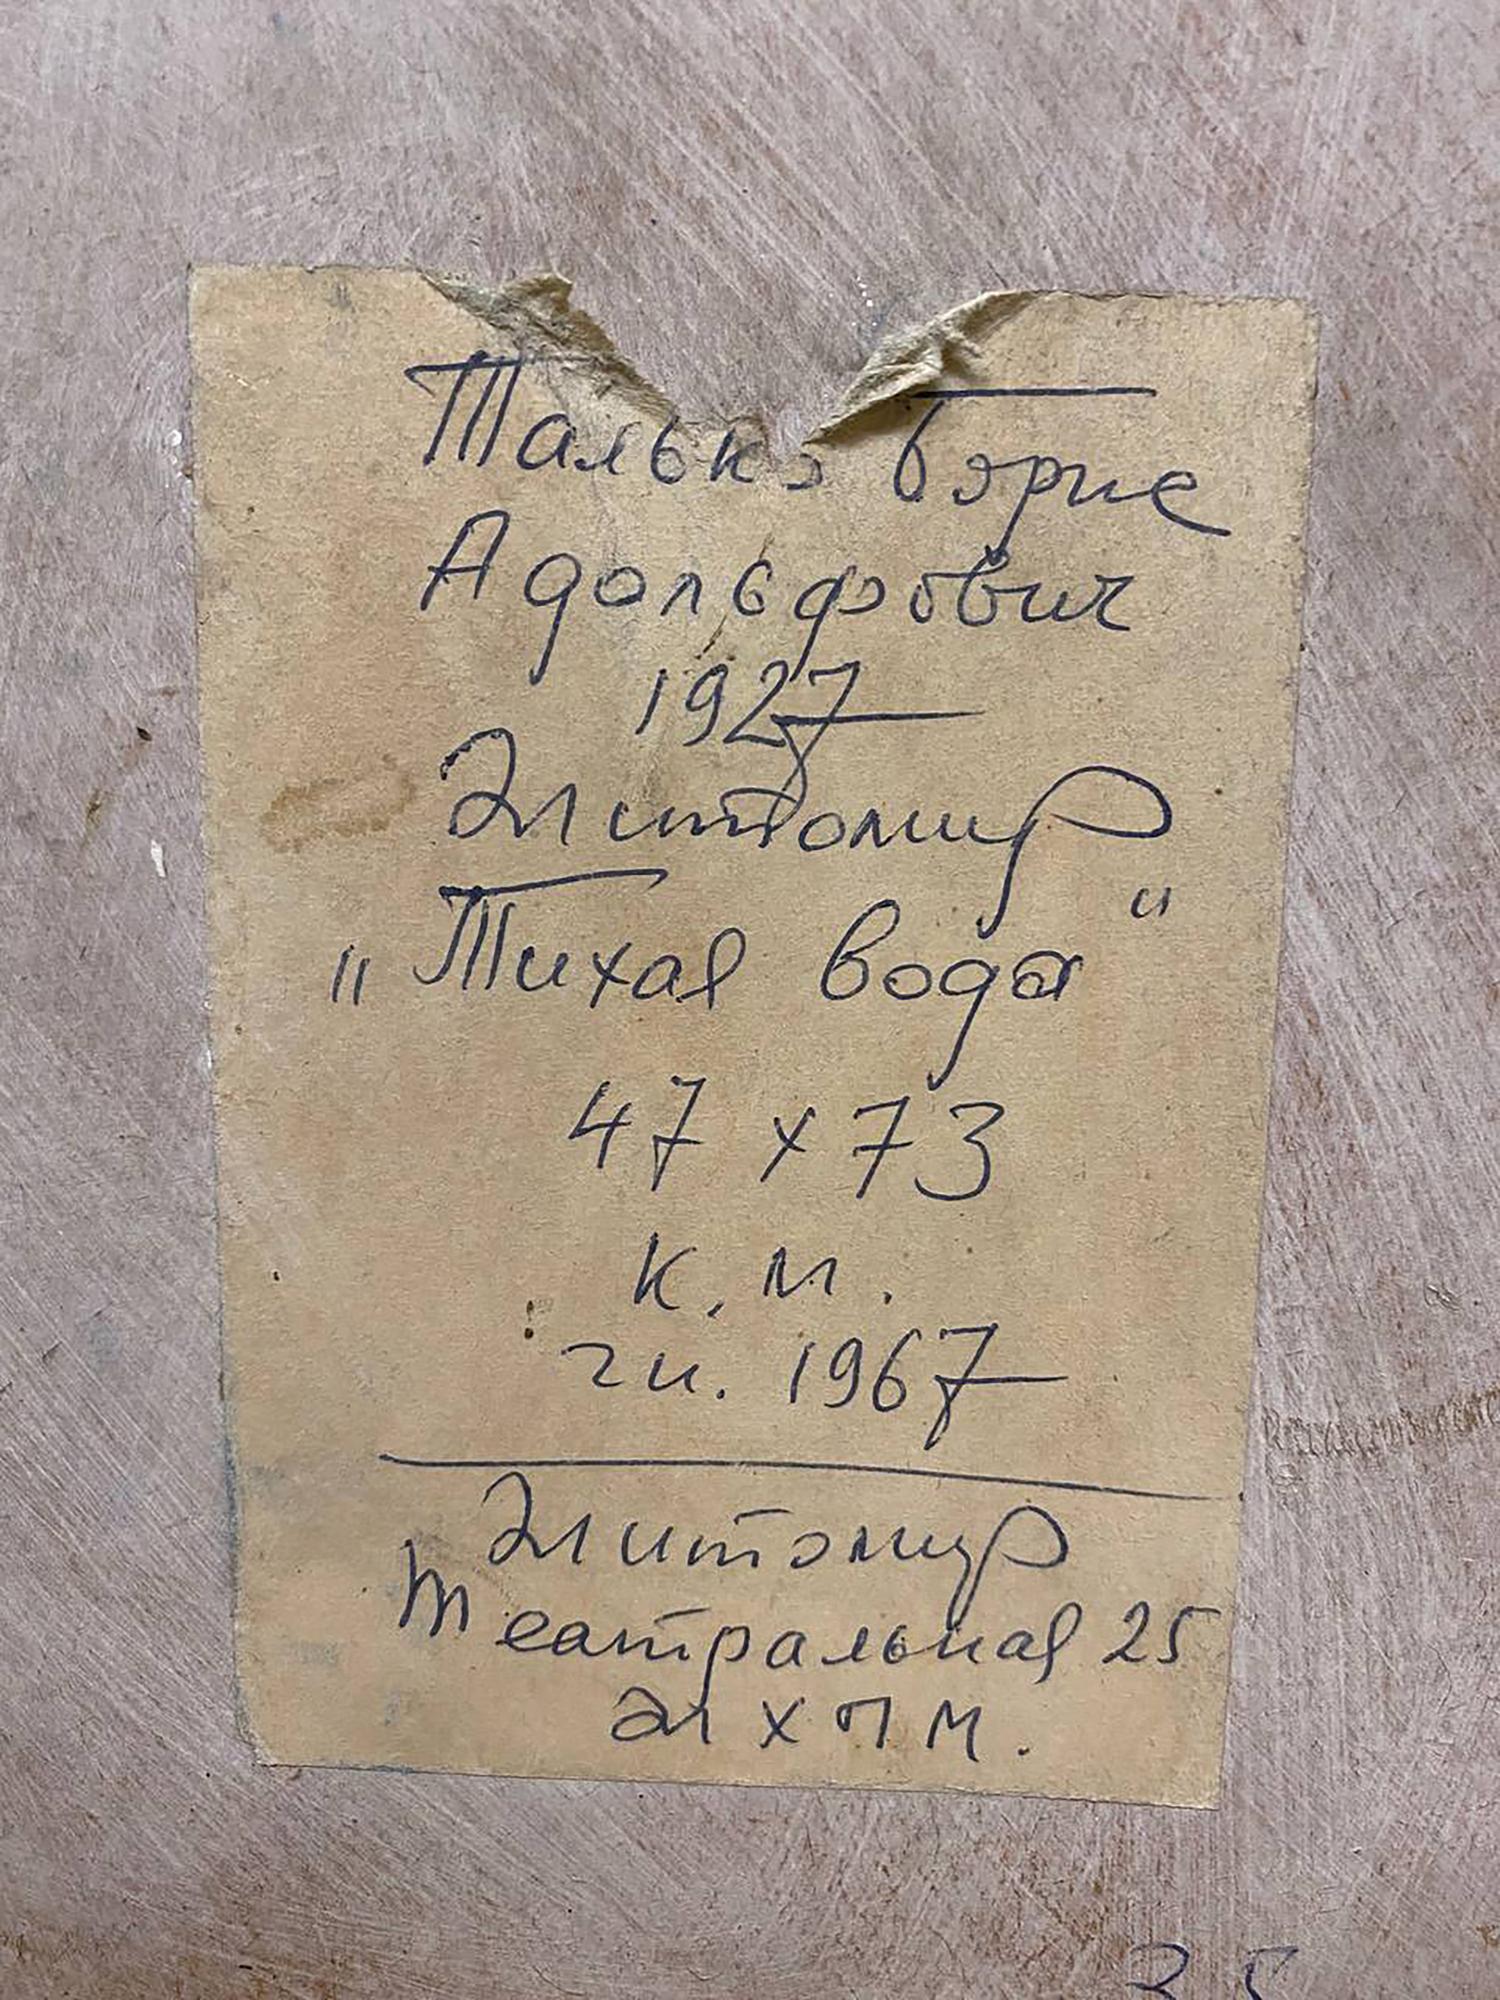 Талько Борис
Адольфович
1927
Житомир
"Тихая вода"
47 х 73
к. м.
ги. 1967
Житомир
Театральная 25
ЖХПМ.
35